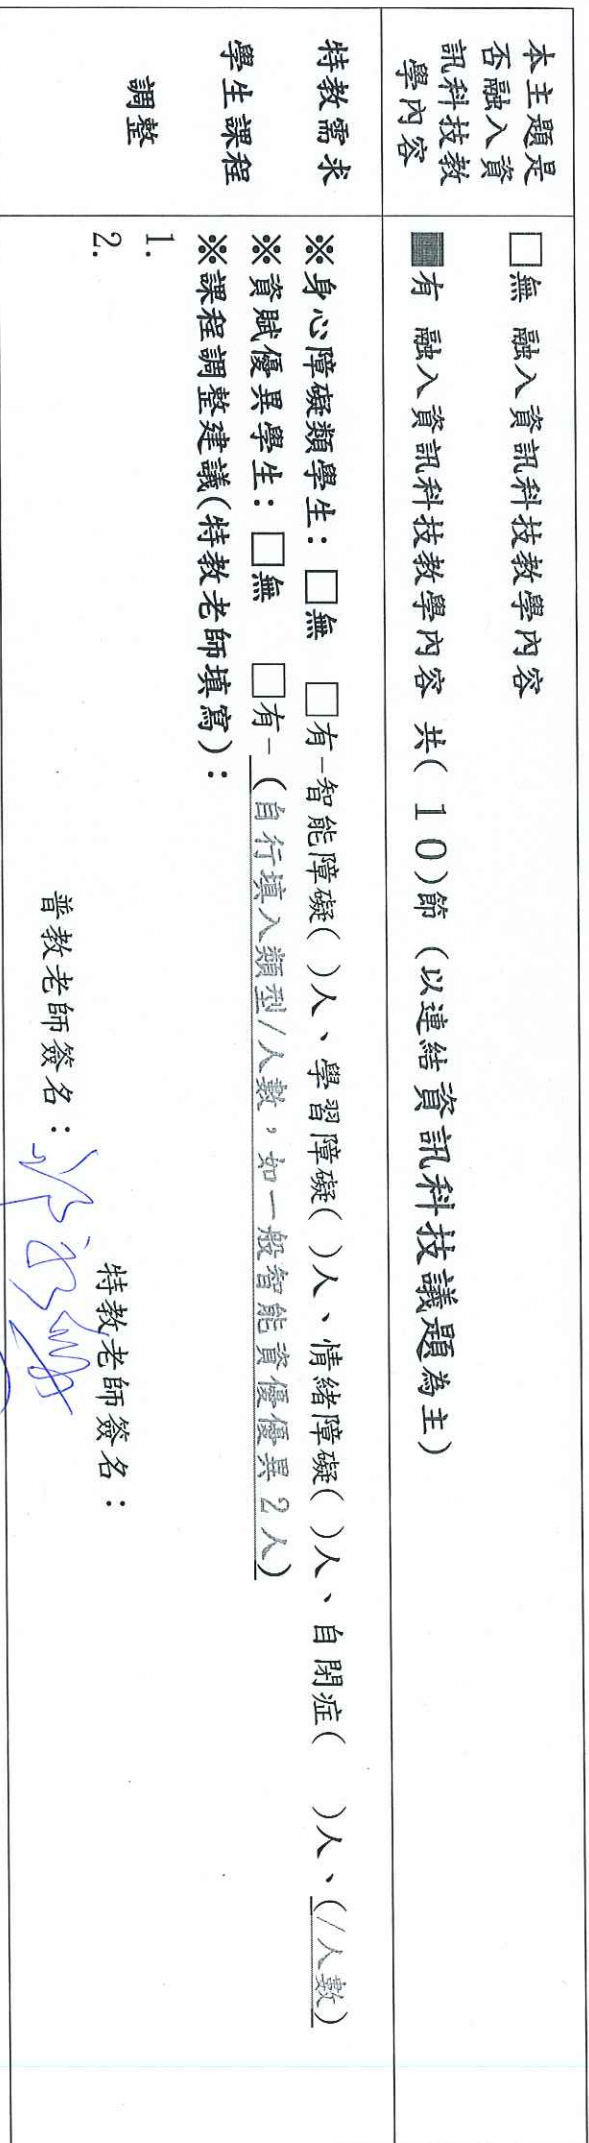 本主題是
否融入資
訊科技教
學內容
□無 融入資訊科技教學內容
■有 融入資訊科技教學內容 共( 10)節 (以連結資訊科技議題為主)
特教需求
學生課程
調整
※身心障礙類學生：□無 □有-智能障礙( )人、學習障礙( )人、情緒障礙( )人、自閉症( )人、(/人數)
※資賦優異學生：□無 □有-(自行填入類型/人數，如一般智能資優優異2人)
※課程調整建議(特教老師填寫)：
1.
2.
特教老師簽名：
普教老師簽名：